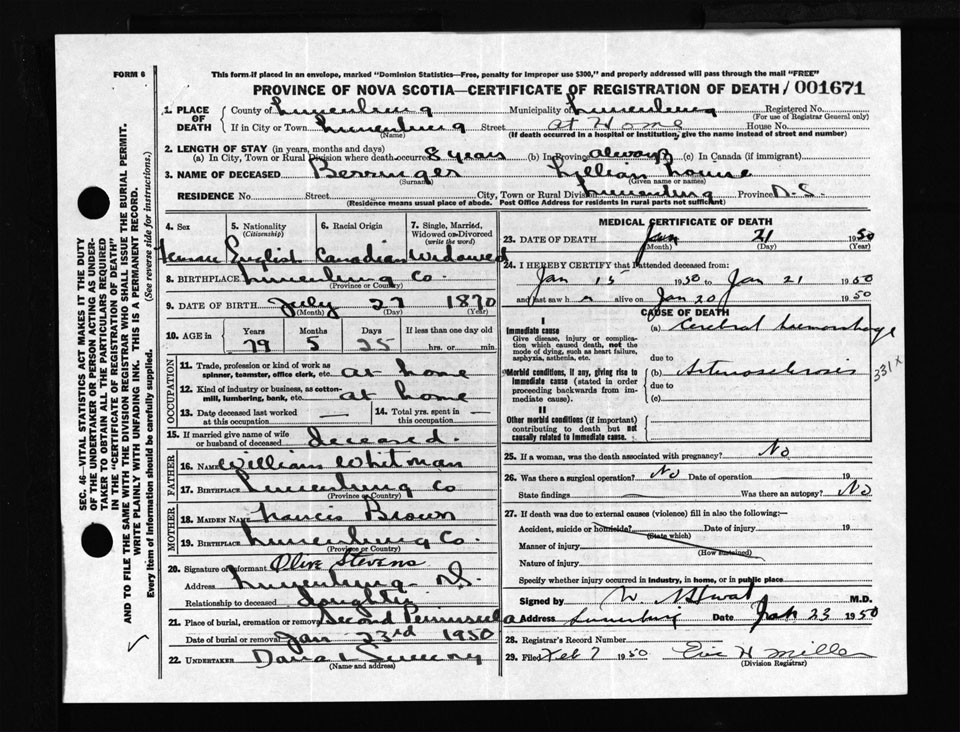 FORM 6
This form if placed in an envelope, marked "Dominion Statistics—Free, penalty for improper use $300," and properly addressed will pass through the mail "FREE"
PROVINCE OF NOVA SCOTIA—CERTIFICATE OF REGISTRATION OF DEATH / 001671
1. PLACE OF DEATH County of Lunenburg Municipality of Lunenburg Registered No.
(For use of Registrar General only)
If in City or Town Lunenburg Street at Home House No.
(Name) (If death occurred in a hospital or institution, give the name instead of street and number)
2. LENGTH OF STAY (in years, months and days)
(a) In City, Town or Rural Division where death occurred 8 years (b) In Province always (c) In Canada (if immigrant)
3. NAME OF DECEASED Berringer Lillian Louise
(Surname) (Given name or names)
RESIDENCE No. Street City, Town or Rural Division Lunenburg Province N.S.
(Residence means usual place of abode. Post Office Address for residents in rural parts not sufficient)
4. Sex 5. Nationality 6. Racial Origin 7. Single, Married,
(Citizenship) Widowed or Divorced
(write the word)
Female English Canadian Widowed
8. BIRTHPLACE Lunenburg Co.
(Province or Country)
9. DATE OF BIRTH July 27 1870
(Month) (Day) (Year)
10. AGE in Years Months Days If less than one day old
79 5 25 hrs. or min.
OCCUPATION
11. Trade, profession or kind of work as
spinner, teamster, office clerk, etc. at home
12. Kind of industry or business, as cotton-
mill, lumbering, bank, etc. at home
13. Date deceased last worked 14. Total yrs. spent in
at this occupation — this occupation —
15. If married give name of wife
or husband of deceased deceased.
FATHER
16. NAME William Whitman
17. BIRTHPLACE Lunenburg Co
(Province or Country)
MOTHER
18. MAIDEN NAME Francis Brown
19. BIRTHPLACE Lunenburg Co.
(Province or Country)
20. Signature of informant Olive Stevens
Address Lunenburg N.S.
Relationship to deceased Daughter
21. Place of burial, cremation or removal Second Peninsula
Date of burial or removal Jan 23rd 1950
22. UNDERTAKER
(Name and address)
MEDICAL CERTIFICATE OF DEATH
23. DATE OF DEATH Jan 21 1950
(Month) (Day) (Year)
24. I HEREBY CERTIFY that I attended deceased from:
Jan 15 1950 to Jan 21 1950
and last saw h er alive on Jan 20 1950
CAUSE OF DEATH
I
Immediate cause (a) Cerebral haemorrhage
Give disease, injury or complica-
tion which caused death, not the
mode of dying, such as heart failure,
asphyxia, asthenia, etc. due to
Morbid conditions, if any, giving rise to (b) Arteriosclerosis
immediate cause (stated in order due to
proceeding backwards from im-
mediate cause). (c)
331 x
II
Other morbid conditions (if important)
contributing to death but not
causally related to immediate cause.
25. If a woman, was the death associated with pregnancy? No
26. Was there a surgical operation? No Date of operation 19
State findings Was there an autopsy? No
27. If death was due to external causes (violence) fill in also the following:—
Accident, suicide or homicide? Date of injury 19
(State which)
Manner of injury
(How sustained)
Nature of injury
Specify whether injury occurred in industry, in home, or in public place
Signed by W. M.D.
Address Lunenburg Date Jan 23 1950
28. Registrar's Record Number
29. Filed Feb 7 1950 H Miller
(Division Registrar)
SEC. 46—VITAL STATISTICS ACT MAKES IT THE DUTY
OF THE UNDERTAKER OR PERSON ACTING AS UNDER-
TAKER TO OBTAIN ALL THE PARTICULARS REQUIRED
IN THE "CERTIFICATE OF REGISTRATION OF DEATH"
AND TO FILE THE SAME WITH THE DIVISION REGISTRAR WHO SHALL ISSUE THE BURIAL PERMIT.
WRITE PLAINLY WITH UNFADING INK. THIS IS A PERMANENT RECORD.
Every item of Information should be carefully supplied. (See reverse side for instructions.)